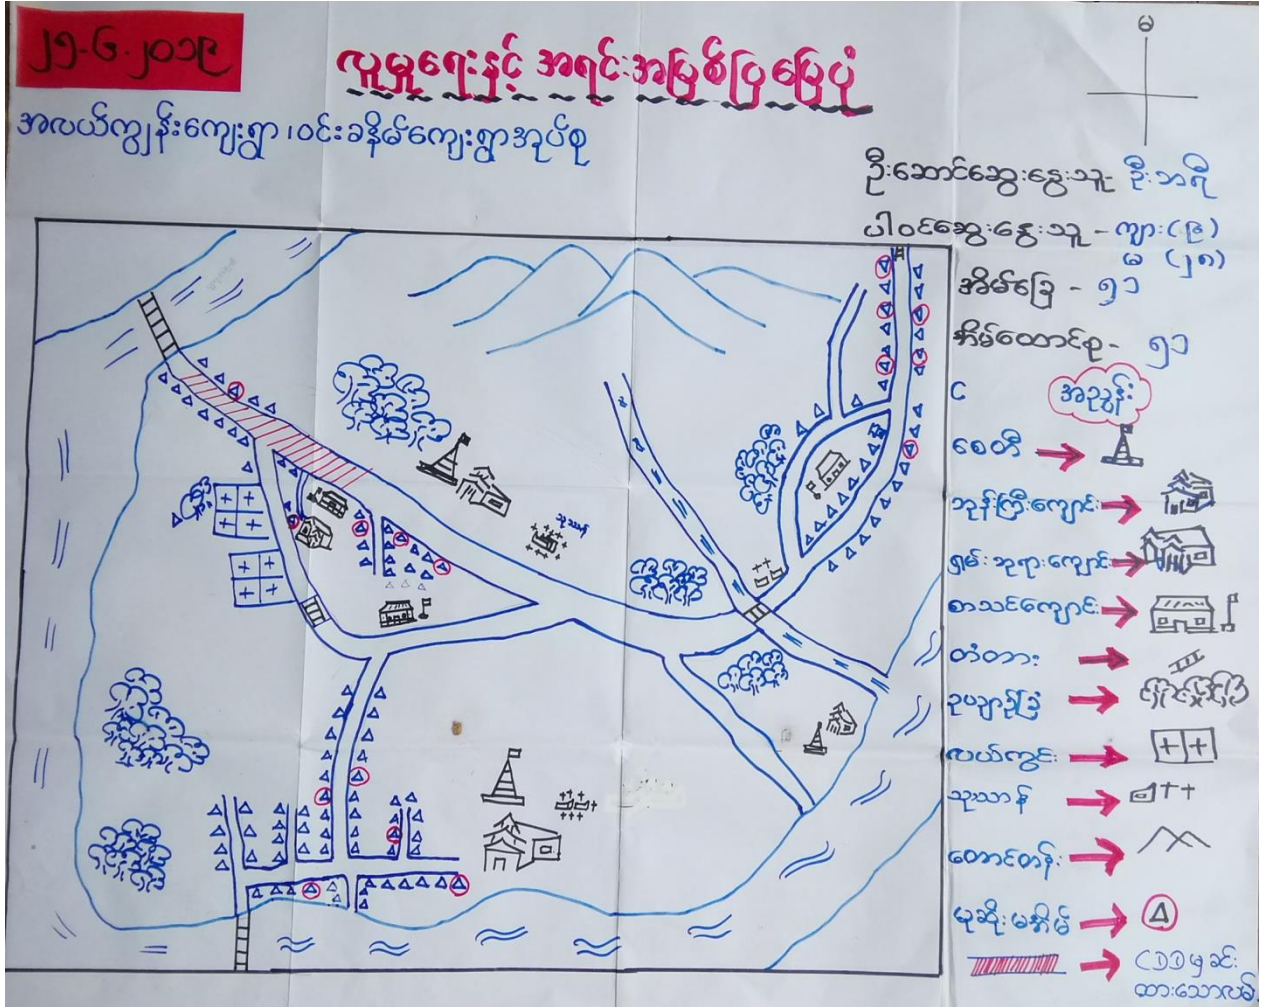 ၂၅-၆-၂၀၁၉
လူမှုရေးနှင့် အရင်းအမြစ်ပြမြေပုံ
အလယ်ကျွန်းကျေးရွာ၊ ဝင်းခနိမ်ကျေးရွာအုပ်စု
မ
ဦးဆောင်ဆွေးနွေးသူ- ဦးဘရီ
ပါဝင်ဆွေးနွေးသူ - ကျား(၉)
မ (၂၈)
အိမ်ခြေ - ၅၁
အိမ်ထောင်စု - ၅၁
အညွှန်း
စေတီ
ဘုန်းကြီးကျောင်း
ရှမ်းဘုရားကျောင်း
စာသင်ကျောင်း
တံတား
ဥယျာဉ်ခြံ
လယ်ကွင်း
သုသာန်
တောင်တန်း
မုဆိုးမအိမ်
CDD မှခင်းထားသောလမ်း